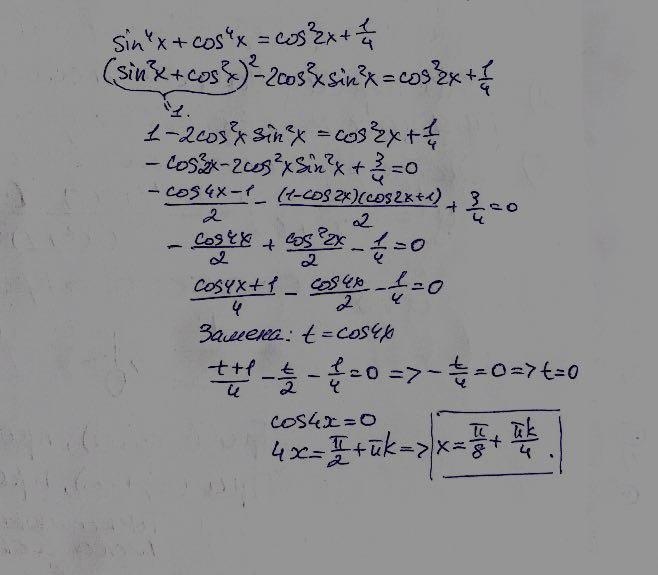 sin⁴x + cos⁴x = cos²2x + 1/4
(sin²x + cos²x)² - 2cos²x sin²x = cos²2x + 1/4
1.
1 - 2cos²x sin²x = cos²2x + 1/4
- cos²2x - 2cos²x sin²x + 3/4 = 0
- (cos4x - 1)/2 - ((1 - cos2x)(cos2x + 1))/2 + 3/4 = 0
- cos4x/2 + cos²2x/2 - 1/4 = 0
(cos4x + 1)/4 - cos4x/2 - 1/4 = 0
Замена: t = cos4x
(t + 1)/4 - t/2 - 1/4 = 0 => - t/4 = 0 => t = 0
cos4x = 0
4x = π/2 + πk => x = π/8 + πk/4 .